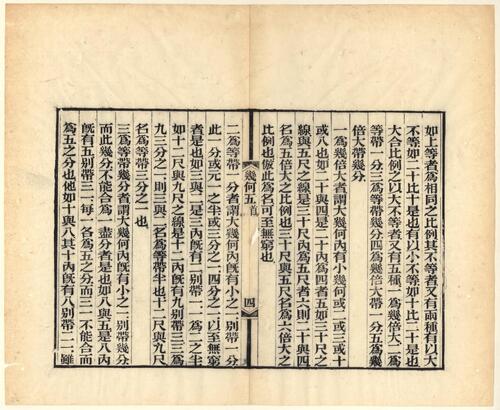 如二等者爲相同之比例其不等者又有兩種有以大
不等如二十比十是也有以小不等如十比二十是也
大合比例之以大不等者又有五種一爲幾倍大二爲
等帶一分三爲等帶幾分四爲幾倍大帶一分五爲幾
倍大帶幾分
一爲幾倍大者謂大幾何內有小幾何或二或三或十
或八也如二十與四是二十內爲四者五如三十尺之
線與五尺之線是三十尺內爲五尺者六則二十與四
名爲五倍大之比例也三十尺與五尺名爲六倍大之
比例也倣此爲名可至無窮也
幾何五首
四
二爲等帶一分者謂大幾何內旣有小之一別帶一分
此一分或元一之半或三分之一四分之一以至無窮
者是也如三與二是三內旣有二別帶一一爲二之半
如十二尺與九尺之線是十二內旣有九別帶三三爲
九三分之一則三與二名爲等帶半也十二尺與九尺
名爲等帶三分之一也
三爲等帶幾分者謂大幾何內旣有小之一別帶幾分
而此幾分不能合爲一盡分者是也如八與五是八內
旣有五別帶三一每一各爲五之分而三一不能合而
爲五之分也他如十與八其十內旣有八別帶二一雖